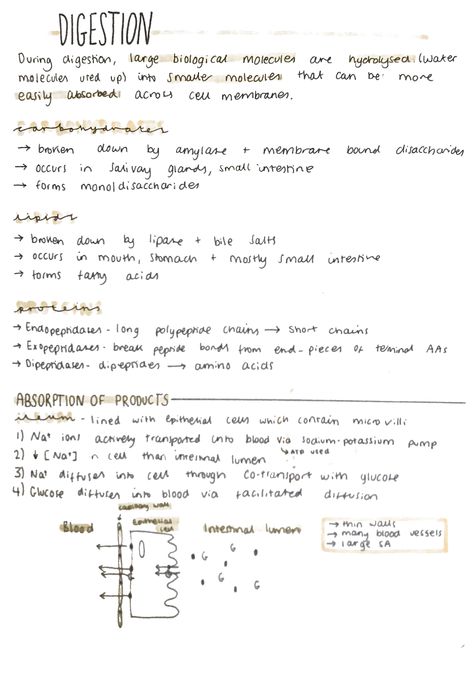 DIGESTION
During digestion, large biological molecules are hydrolysed (water
molecules used up) into smaller molecules that can be more
easily absorbed across cell membranes.
carbohydrates
→ broken down by amylase + membrane bound disaccharides
→ occurs in salivay glands, small intestine
→ forms mono/disaccharides
lipids
→ broken down by lipase + bile salts
→ occurs in mouth, stomach + mostly small intestine
→ forms fatty acids
proteins
→ Endopeptidases - long polypeptide chains → short chains
→ Exopeptidases - break peptide bonds from end-pieces of teminal AAs
→ Dipeptidases - dipeptides → amino acids
ABSORPTION OF PRODUCTS
ileum - lined with epithelial cells which contain microvilli
1) Na⁺ ions actively transported into blood via sodium-potassium pump
↳ ATP used
2) ↓ [Na⁺] in cell than internal lumen
3) Na⁺ diffuses into cell through co-transport with glucose
4) Glucose diffuses into blood via facilitated diffusion
capillary wall
Blood
epithelial cell
Internal lumen
→ thin walls
→ many blood vessels
→ large SA
G G
G G